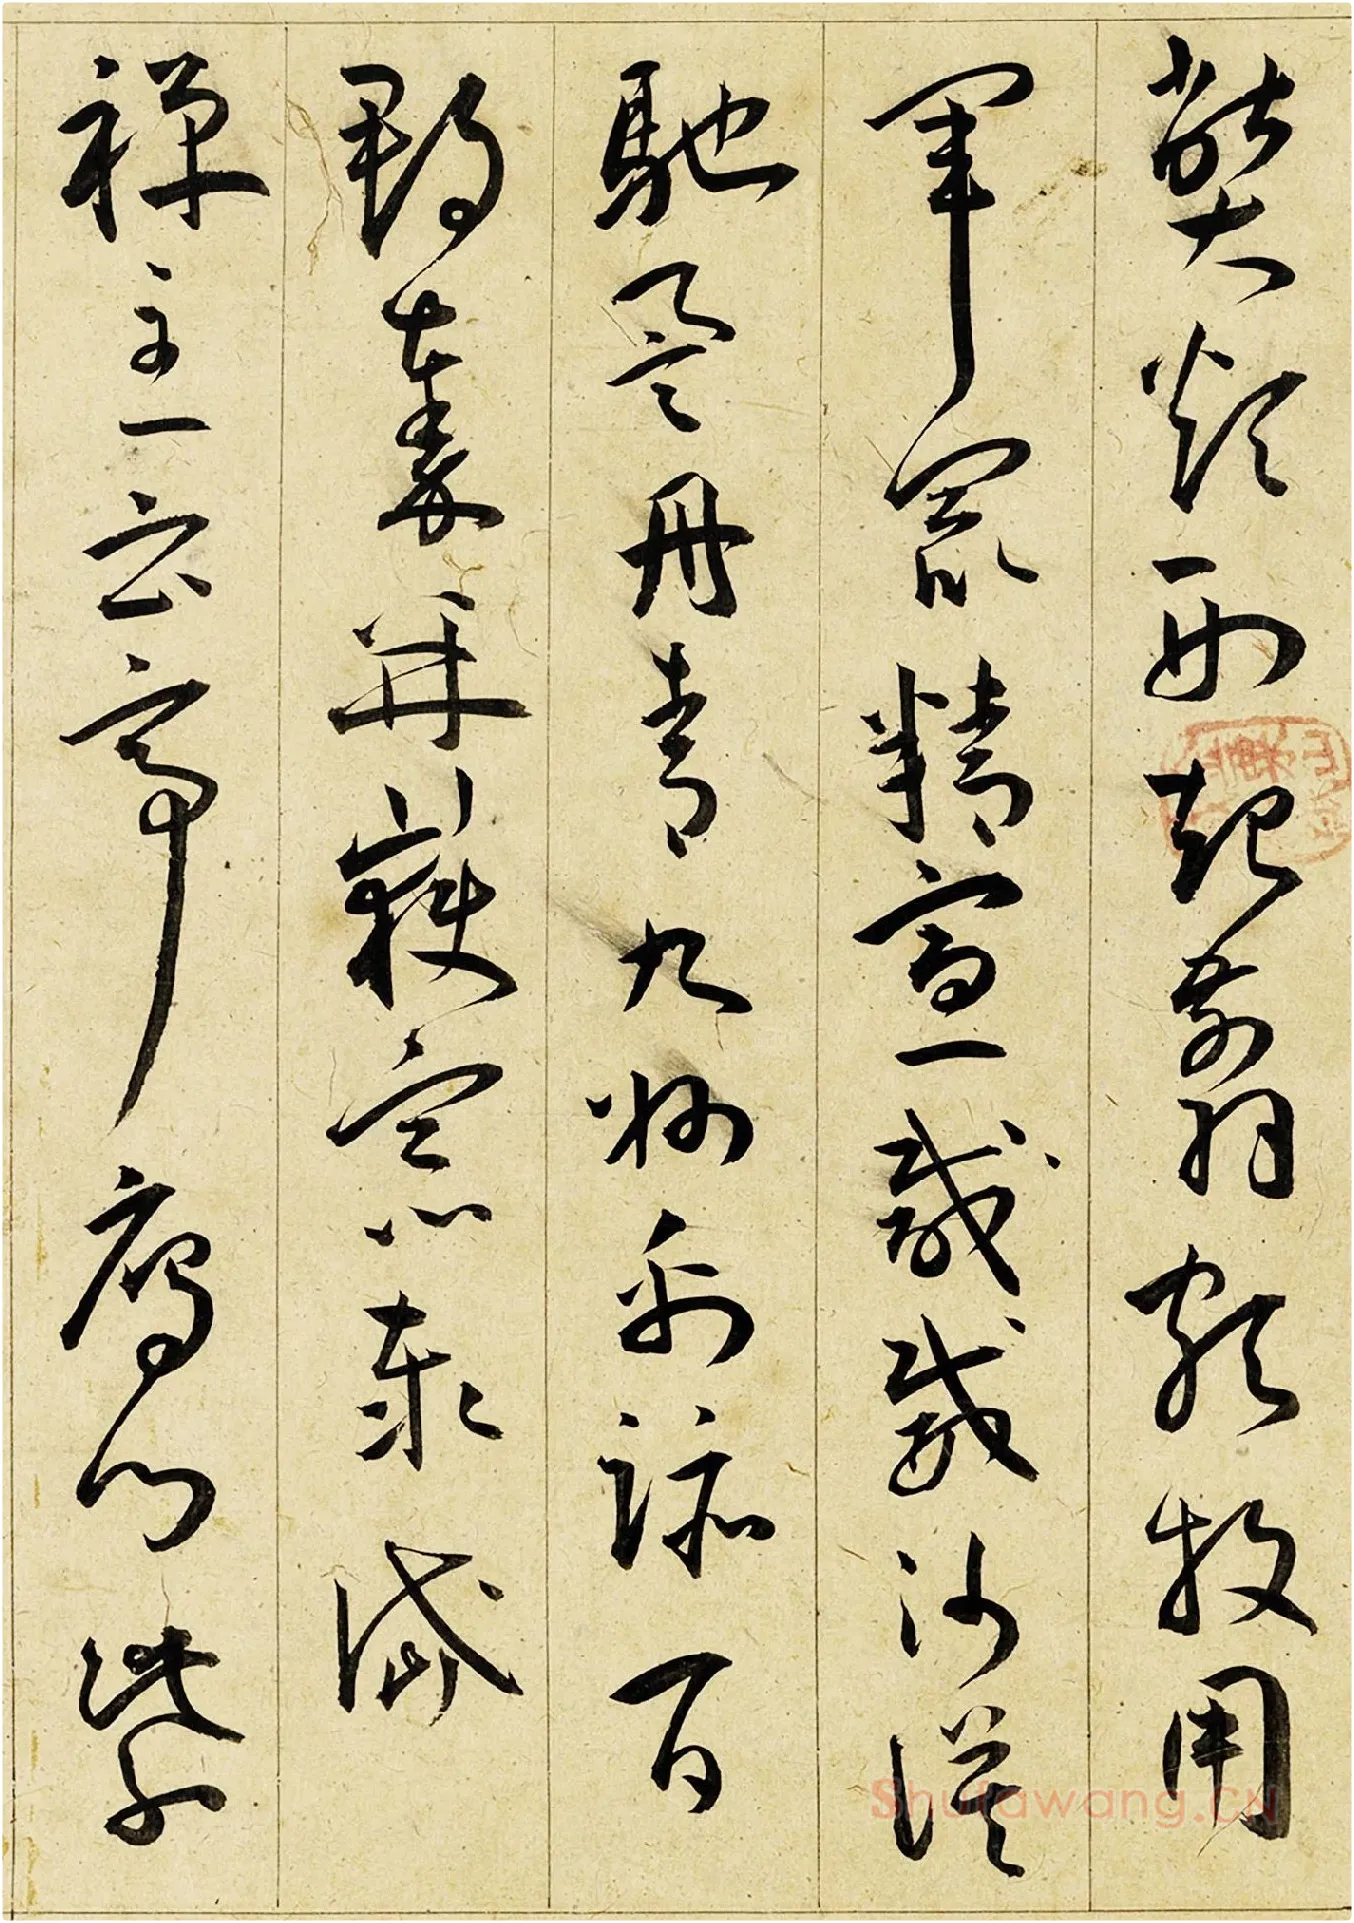 弊煩刑起翦頗牧用
軍最精宣威威沙漠
馳譽丹青九州禹跡百
郡秦并嶽宗泰岱
禪主云亭鴈門紫
Shufawang.CN